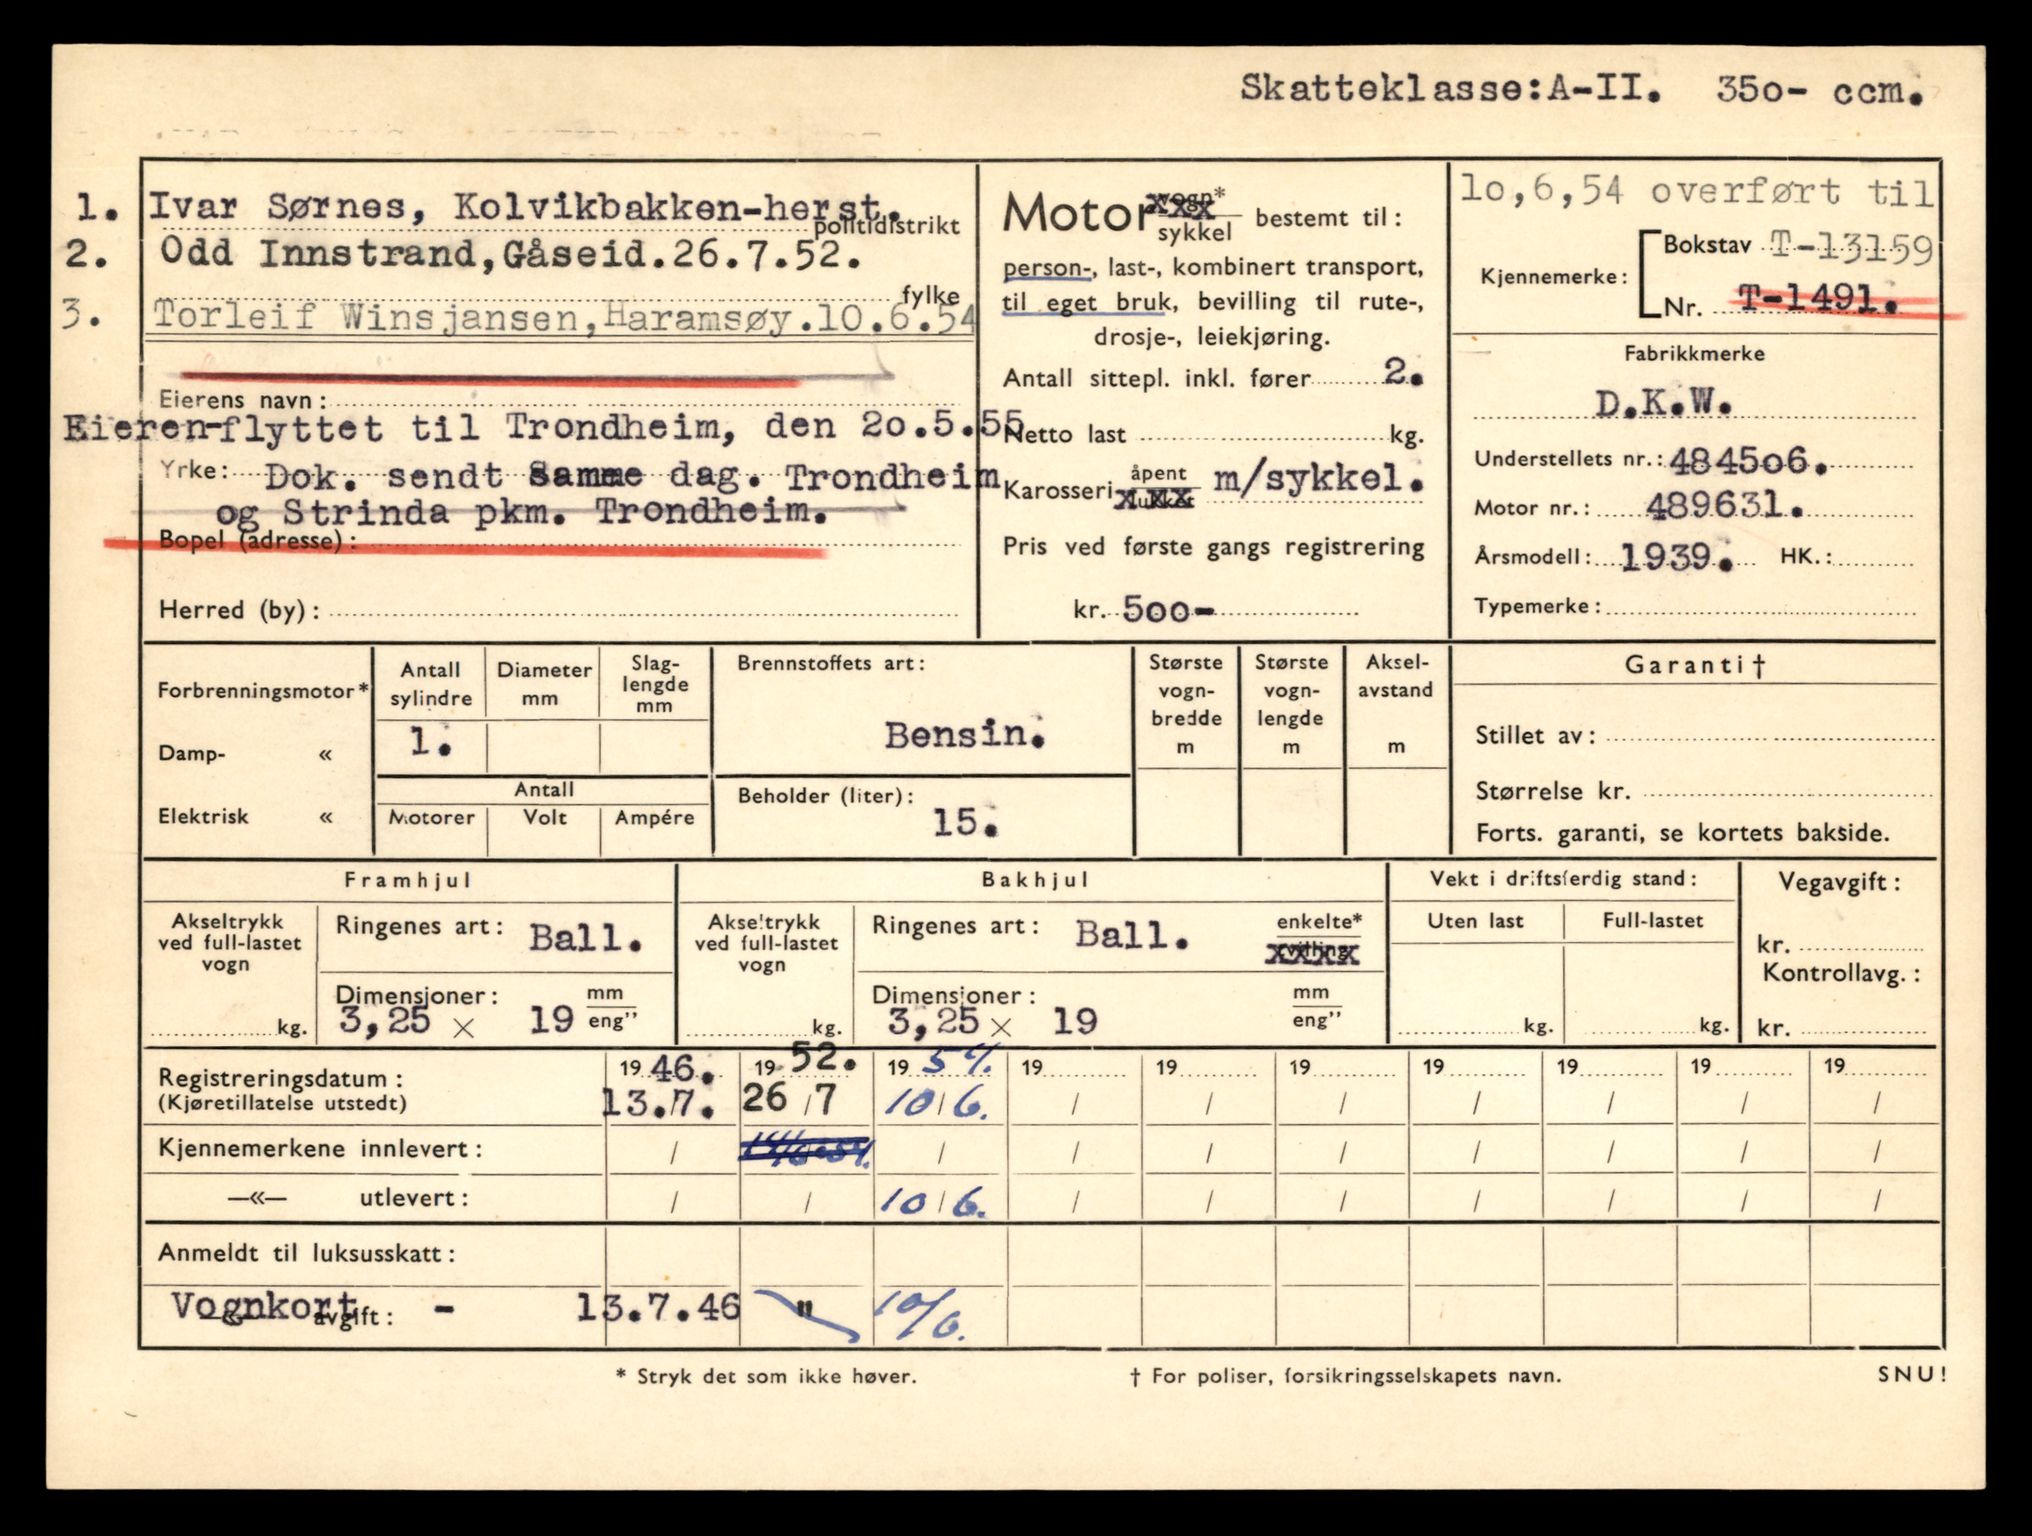 Skatteklasse:A-II. 35o- ccm.
1. Ivar Sørnes, Kolvikbakken-herst.
politidistrikt
2. Odd Innstrand,Gåseid.26.7.52.
fylke
3. Torleif Winsjansen,Haramsøy.10.6.54
Eierens navn:
Eieren-flyttet til Trondheim, den 2o.5.55
Yrke: Dok. sendt Samme dag. Trondheim
og Strinda pkm. Trondheim.
Bopel (adresse):
Herred (by):
Motor vogn* bestemt til:
sykkel
person-, last-, kombinert transport,
til eget bruk, bevilling til rute-,
drosje-, leiekjøring.
Antall sittepl. inkl. fører 2.
Netto last kg.
Karosseri åpent m/sykkel.
lukket
Pris ved første gangs registrering
kr. 5oo-
lo,6,54 overført til
Kjennemerke: Bokstav T-13159
Nr. T-1491.
Fabrikkmerke
D.K.W.
Understellets nr.: 4845o6.
Motor nr.: 489631.
Årsmodell: 1939. HK.:
Typemerke:
Forbrenningsmotor*
Damp- «
Elektrisk «
Antall sylindre
Diameter mm
Slag-
lengde
mm
1.
Antall
Motorer Volt Ampére
Brennstoffets art:
Bensin.
Beholder (liter):
15.
Største
vogn-
bredde
m
Største
vogn-
lengde
m
Aksel-
avstand
m
Garanti†
Stillet av:
Størrelse kr.
Forts. garanti, se kortets bakside.
Framhjul
Akseltrykk
ved full-lastet
vogn
kg.
Ringenes art: Ball.
Dimensjoner: mm
3,25 × 19 eng"
Bakhjul
Akseltrykk
ved full-lastet
vogn
kg.
Ringenes art: Ball. enkelte*
tvilling
Dimensjoner: mm
3,25 × 19 eng"
Vekt i driftsferdig stand:
Uten last Full-lastet
kg. kg.
Vegavgift:
kr.
Kontrollavg.:
kr.
Registreringsdatum: 19 46. 19 52. 19 54. 19 19 19 19 19 19 19
(Kjøretillatelse utstedt) 13./7. 26 / 7 10 / 6. / / / / / / /
Kjennemerkene innlevert: / / / / / / / / /
—«— utlevert: / / 10 / 6. / / / / / / /
Anmeldt til luksusskatt:
Vognkort avgift: - 13.7.46 " 10/6.
* Stryk det som ikke høver.
† For poliser, forsikringsselskapets navn.
SNU!